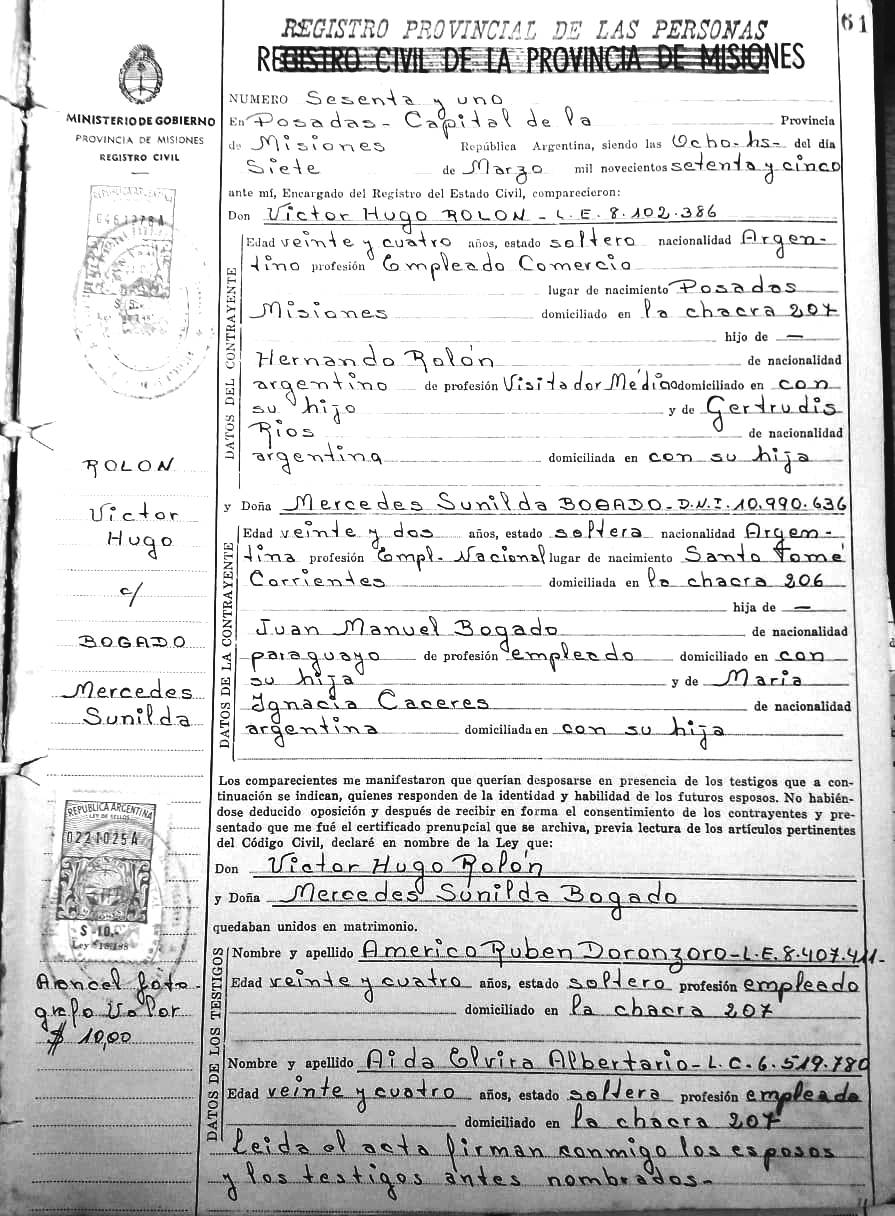 REGISTRO PROVINCIAL DE LAS PERSONAS
61
REGISTRO CIVIL DE LA PROVINCIA DE MISIONES
MINISTERIO DE GOBIERNO
PROVINCIA DE MISIONES
REGISTRO CIVIL
NUMERO Sesenta y uno
En Posadas - Capital de la Provincia
de Misiones República Argentina, siendo las Ocho - hs - del día
Siete de Marzo mil novecientos setenta y cinco
ante mí, Encargado del Registro del Estado Civil, comparecieron:
Don Victor Hugo ROLON - L.E. 8.102.386
DATOS DEL CONTRAYENTE
Edad veinte y cuatro años, estado soltero nacionalidad Argen-
tino profesión Empleado Comercio
lugar de nacimiento Posadas
Misiones domiciliado en la chacra 207
hijo de —
Hernando Rolón de nacionalidad
argentino de profesión Visitador Médico domiciliado en con
su hijo y de Gertrudis
Rios de nacionalidad
argentina domiciliada en con su hija
ROLON
Victor
Hugo
c/
BOGADO
Mercedes
Sunilda
y Doña Mercedes Sunilda BOGADO - D.N.I. 10.990.636
DATOS DE LA CONTRAYENTE
Edad veinte y dos años, estado soltera nacionalidad Argen-
tina profesión Empl - Nacional lugar de nacimiento Santo Tomé
Corrientes domiciliada en la chacra 206
hija de —
Juan Manuel Bogado de nacionalidad
paraguayo de profesión empleado domiciliado en con
su hija y de Maria
Ignacia Caceres de nacionalidad
argentina domiciliada en con su hija
Los comparecientes me manifestaron que querían desposarse en presencia de los testigos que a con-
tinuación se indican, quienes responden de la identidad y habilidad de los futuros esposos. No habién-
dose deducido oposición y después de recibir en forma el consentimiento de los contrayentes y pre-
sentado que me fué el certificado prenupcial que se archiva, previa lectura de los artículos pertinentes
del Código Civil, declaré en nombre de la Ley que:
Don Victor Hugo Rolón
y Doña Mercedes Sunilda Bogado
quedaban unidos en matrimonio.
REPUBLICA ARGENTINA
LEY DE SELLOS
0221025A
$ 10.-
Arancel foto-
grafo Valor
$ 10,00
DATOS DE LOS TESTIGOS
Nombre y apellido Americo Ruben Doronzoro - L.E. 8.407.411-
Edad veinte y cuatro años, estado soltero profesión empleado
domiciliado en la chacra 207
Nombre y apellido Aida Elvira Albertario - L.C. 6.519.780
Edad veinte y cuatro años, estado soltera profesión empleada
domiciliado en la chacra 207
Leida el acta firman conmigo los esposos
y los testigos antes nombrados -